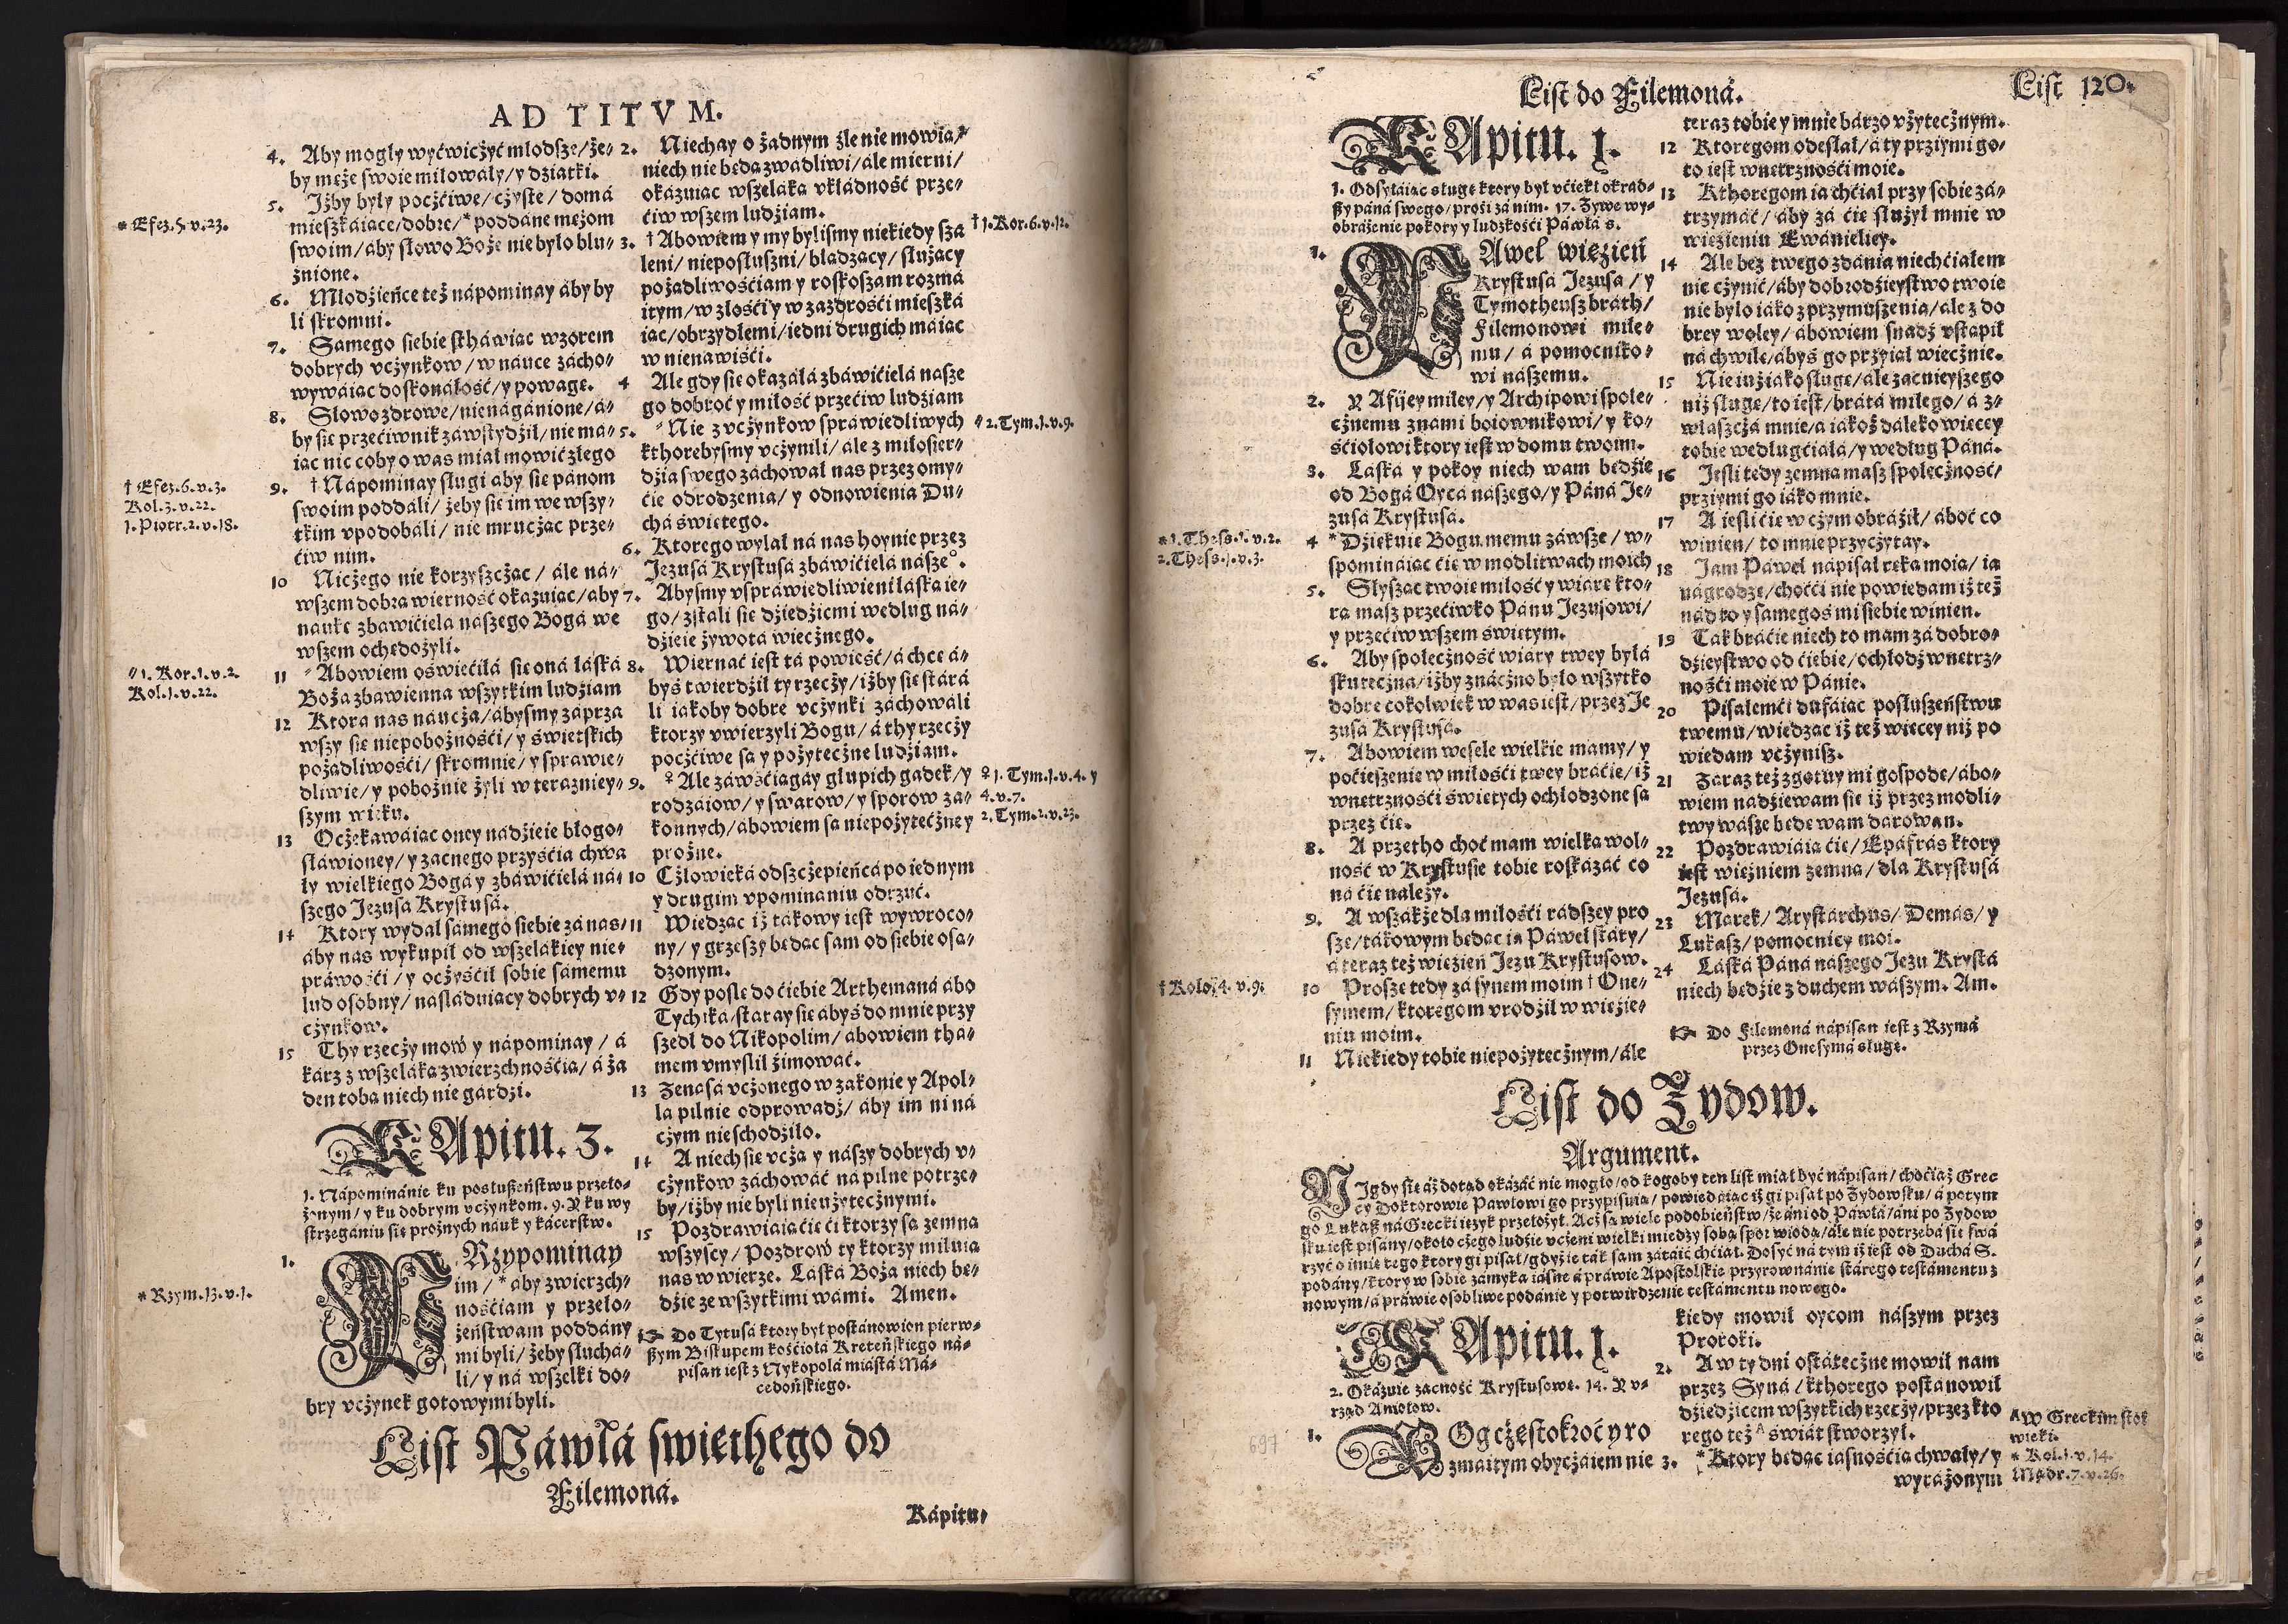 AD TITVM.
4. Aby mogły wyćwiczyć młodsze/że⸗
by męże swoie miłowały/y dziatki.
5. Iżby były poczćiwe/czyste/domá
mieszkáiące/dobre/*poddáne mężom
swoim/áby słowo Boże nie było blu⸗
źnione.
6. Młodzieńce też nápominay áby by
li skromni.
7. Sámego siebie stháwiáiąc wzorem
dobrych vczynkow/w náuce zácho⸗
wywáiąc doskonáłość/y powagę.
8. Słowo zdrowe/nienágánione/á⸗
by się przećiwnik záwstydził/nie má⸗
iąc nic coby o was miał mowić złego
9. †Nápominay sługi áby się pánom
swoim poddáli/żeby się im we wszy⸗
tkim vpodobáli/nie mrucząc prze⸗
ćiw nim.
10 Niczego nie korzyszcząc/ále ná⸗
wszem dobrą wierność okázuiąc/áby
náukę zbáwićielá nászego Bogá we
wszem ochędożyli.
11 〃Abowiem oświećiłá się oná łáská
Boża zbáwienna wszytkim ludziam
12 Ktora nas náucza/ábysmy záprza
wszy się niepobożnośći/y świetskich
pożądliwośći/skromnie/y spráwie⸗
dliwie/y pobożnie żyli w teraźniey⸗
szym wieku.
13 Oczekawáiąc oney nádzieie błogo⸗
słáwioney/y zacnego przyśćia chwa
ły wielkiego Bogá y zbáwićielá ná⸗
szego Jezusá Krystusá.
14 Ktory wydał sámego siebie zá nas/
áby nas wykupił od wszelákiey nie⸗
práwośći/y oczyśćił sobie sámemu
lud osobny/násláduiący dobrych v⸗
czynkow.
15 Thy rzeczy mow y nápominay/á
karz z wszeláką zwierzchnośćią/á ża
den tobą niech nie gárdzi.
KApitu. 3.
1. Nápominánie ku posłußeństwu przeło⸗
żonym/y ku dobrym vczynkom. 9. Y ku wy
strzegániu się prożnych náuk y kácerstw.
1. PRzypominay
im/*áby zwierzch⸗
nośćiam y przeło⸗
żeństwam poddány
mi byli/żeby słucha⸗
li/y ná wszelki do⸗
bry vczynek gotowymi byli.
* Efez.5.v.23.
† Efez.6.v.3.
Kol.3.v.22.
1.Piotr.2.v.18.
〃 1.Kor.1.v.2.
Kol.1.v.22.
* Rzym.13.v.1.
2. Niechay o żadnym źle nie mowią/
niech nie będą zwadliwi/ále mierni/
okázuiąc wszeláką vkłádność prze⸗
ćiw wszem ludziam.
3. †Abowiem y my bylismy niekiedy sza
leni/nieposłuszni/błądzący/służący
pożądliwośćiam y roskoszam rozmá
itym/w złośći y w zazdrośći mieszká
iąc/obrzydłemi/iedni drugich máiąc
w nienawiśći.
4 Ale gdy się okazáłá zbáwićielá násze
go dobroć y miłość przećiw ludziam
5. 〃Nie z vczynkow spráwiedliwych
kthorebysmy vczynili/ále z miłosier⸗
dzia swego záchował nas przez omy⸗
ćie odrodzenia/y odnowienia Du⸗
chá świętego.
6. Ktorego wylał ná nas hoynie przez
Jezusá Krystusá zbáwićielá násze°.
7. Abysmy vspráwiedliwieni łáską ie⸗
go/zstáli się dziedzicmi według ná⸗
dzieie żywotá wiecznego.
8. Wiernać iest tá powieść/á chcę á⸗
byś twierdził ty rzeczy/iżby się stárá
li iákoby dobre vczynki záchowáli
ktorzy vwierzyli Bogu/á thy rzeczy
poczćiwe są y pożyteczne ludziam.
9. ♀Ale záwśćiągay głupich gadek/y
rodzáiow/y swarow/y sporow za⸗
konnych/ábowiem są niepożyteczne y
prożne.
10 Człowieká odszczepieńcá po iednym
y drugim vpominániu odrzuć.
11 Wiedząc iż tákowy iest wywroco⸗
ny/y grzeszy będąc sam od siebie osą⸗
dzonym.
12 Gdy poślę do ćiebie Arthemaná ábo
Tychiká/stáray się ábyś do mnie przy
szedł do Nikopolim/ábowiem tha⸗
mem vmyślił źimowáć.
13 Zenasá vczonego w zakonie y Apol⸗
lá pilnie odprowadź/áby im ni ná
czym nie schodziło.
14 A niech się vczą y nászy dobrych v⸗
czynkow záchowáć ná pilne potrze⸗
by/iżby nie byli nieużytecznymi.
15 Pozdrawiáią ćię ći ktorzy są zemną
wszyscy/Pozdrow ty ktorzy miłuią
nas w wierze. Łáská Boża niech bę⸗
dzie ze wszytkimi wámi. Amen.
☞ Do Tytusá ktory był postánowion pierw⸗
ßym Biskupem kośćiołá Kreteńskiego ná⸗
pisan iest z Nykopolá miástá Má⸗
cedońskiego.
† 1.Kor.6.v.12.
〃 2.Tym.1.v.9.
♀ 1.Tym.1.v.4. y
4.v.7.
2.Tym.2.v.23.
List Páwłá swiethego do
Filemoná.
Kápitu⸗
List do Filemoná.
List 120.
KApitu. 1.
1. Odsyłáiąc sługę ktory był vćiekł okrad⸗
ßy páná swego/prośi zá nim. 17. Żywe wy⸗
obráżenie pokory y ludzkośći Páwłá s.
1. PAweł więzień
Krystusá Jezusá/y
Tymotheusz bráth/
Filemonowi miłe⸗
mu/á pomocniko⸗
wi nászemu.
2. Y Afijey miłey/y Archipowi społe⸗
cznemu z námi boiownikowi/y ko⸗
śćiołowi ktory iest w domu twoim.
3. Łáská y pokoy niech wam będzie
od Bogá Oycá nászego/y Páná Je⸗
zusá Krystusá.
4 *Dziękuię Bogu memu záwsze/w⸗
spomináiąc ćię w modlitwach moich
5. Słysząc twoię miłość y wiárę kto⸗
rą masz przećiwko Pánu Jezusowi/
y przećiw wszem świętym.
6. Aby społeczność wiáry twey była
skuteczna/iżby znáczno było wszytko
dobre cokolwiek w was iest/przez Je
zusá Krystusá.
7. Abowiem wesele wielkie mamy/y
poćieszenie w miłośći twey bráćie/iż
wnętrznośći świętych ochłodzone są
przez ćię.
8. A przetho choć mam wielką wol⸗
ność w Krystusie tobie roskázáć co
ná ćię należy.
9. A wszákże dla miłośći rádszey pro
szę/tákowym będąc ia Páweł stáry/
á teraz też więzień Jezu Krystusow.
10 Proszę tedy zá synem moim †One⸗
symem/ktoregom vrodził w więzie⸗
niu moim.
11 Niekiedy tobie niepożytecznym/ále
* 1.Thess.1.v.2.
2.Thess.1.v.3.
† Kolos.4.v.9.
teraz tobie y mnie bárzo vżytecznym.
12 Ktoregom odesłał/á ty przyimi go⸗
to iest wnętrznośći moie.
13 Kthoregom ia chćiał przy sobie zá⸗
trzymáć/áby zá ćię służył mnie w
więzieniu Ewánieliey.
14 Ale bez twego zdánia niechćiałem
nic czynić/áby dobrodzieystwo twoie
nie było iáko z przymuszenia/ále z do
brey woley/ábowiem snadź vstąpił
ná chwilę/ábyś go przyiął wiecznie.
15 Nie iuż iáko sługę/ále zacnieyszego
niż sługę/to iest/brátá miłego/á z⸗
właszczá mnie/á iákoż dáleko więcey
tobie według ćiáłá/y według Páná.
16 Jesli tedy zemną masz społeczność/
przyimi go iáko mnie.
17 A iesli ćię w czym obráził/áboć co
winien/to mnie przyczytay.
18 Jam Páweł nápisał ręką moią/ia
nágrodzę/choćći nie powiedam iż też
nád to y sámegoś mi siebie winien.
19 Ták bráćie niech to mam zá dobro⸗
dzieystwo od ćiebie/ochłodź wnętrz⸗
nośći moie w Pánie.
20 Pisałemći dufáiąc posłuszeństwu
twemu/wiedząc iż też więcey niż po
wiedam vczynisz.
21 Záraz też zgotuy mi gospodę/ábo⸗
wiem nádziewam się iż przez modli⸗
twy wásze będę wam dárowan.
22 Pozdrawiáią ćię/Epáfrás ktory
iest więźniem zemną/dla Krystusá
Jezusá.
23 Márek/Arystárchus/Demás/y
Łukasz/pomocnicy moi.
24 Łáská Páná nászego Jezu Krystá
niech będzie z duchem wászym. Am.
☞ Do Filemoná nápisan iest z Rzymá
przez Onesymá sługę.
List do Żydow.
Argument.
NIgdy się áż dotąd okázáć nie mogło/od kogoby ten list miał być nápisan/choćiaż Grec
cy Doktorowie Páwłowi go przypisuią/powiedáiąc iż gi pisał po Żydowsku/á potym
go Łukasz ná Grecki ięzyk przełożył. Acż są wiele podobieństw/że áni od Páwłá/áni po Żydow
sku iest pisány/około czego ludzie vczeni wielki miedzy sobą spor wiodą/ále nie potrzebá się swá
rzyć o imię tego ktory gi pisał/gdyż ie ták sam zátáić chćiał. Dosyć ná tym iż iest od Duchá S.
podány/ktory w sobie zámyka iásne á práwie Apostolskie przyrownánie stárego testámentu z
nowym/á práwie osobliwe podánie y potwirdzenie testámentu nowego.
KApitu. 1.
2. Okázuie zacność Krystusowę. 14. Y v⸗
rząd Aniołow.
1. BOg częstokroć y ro
zmáitym obyczáiem nie
kiedy mowił oycom nászym przez
Proroki.
2. A w ty dni ostáteczne mowił nam
przez Syná/kthorego postánowił
dziedzicem wszytkich rzeczy/przez kto
rego też ᴬ świát stworzył.
3. *Ktory będąc iásnośćią chwały/y
wyráżonym
A W Greckim stoi
wieki.
* Kol.1.v.14.
Mądr.7.v.26.
697